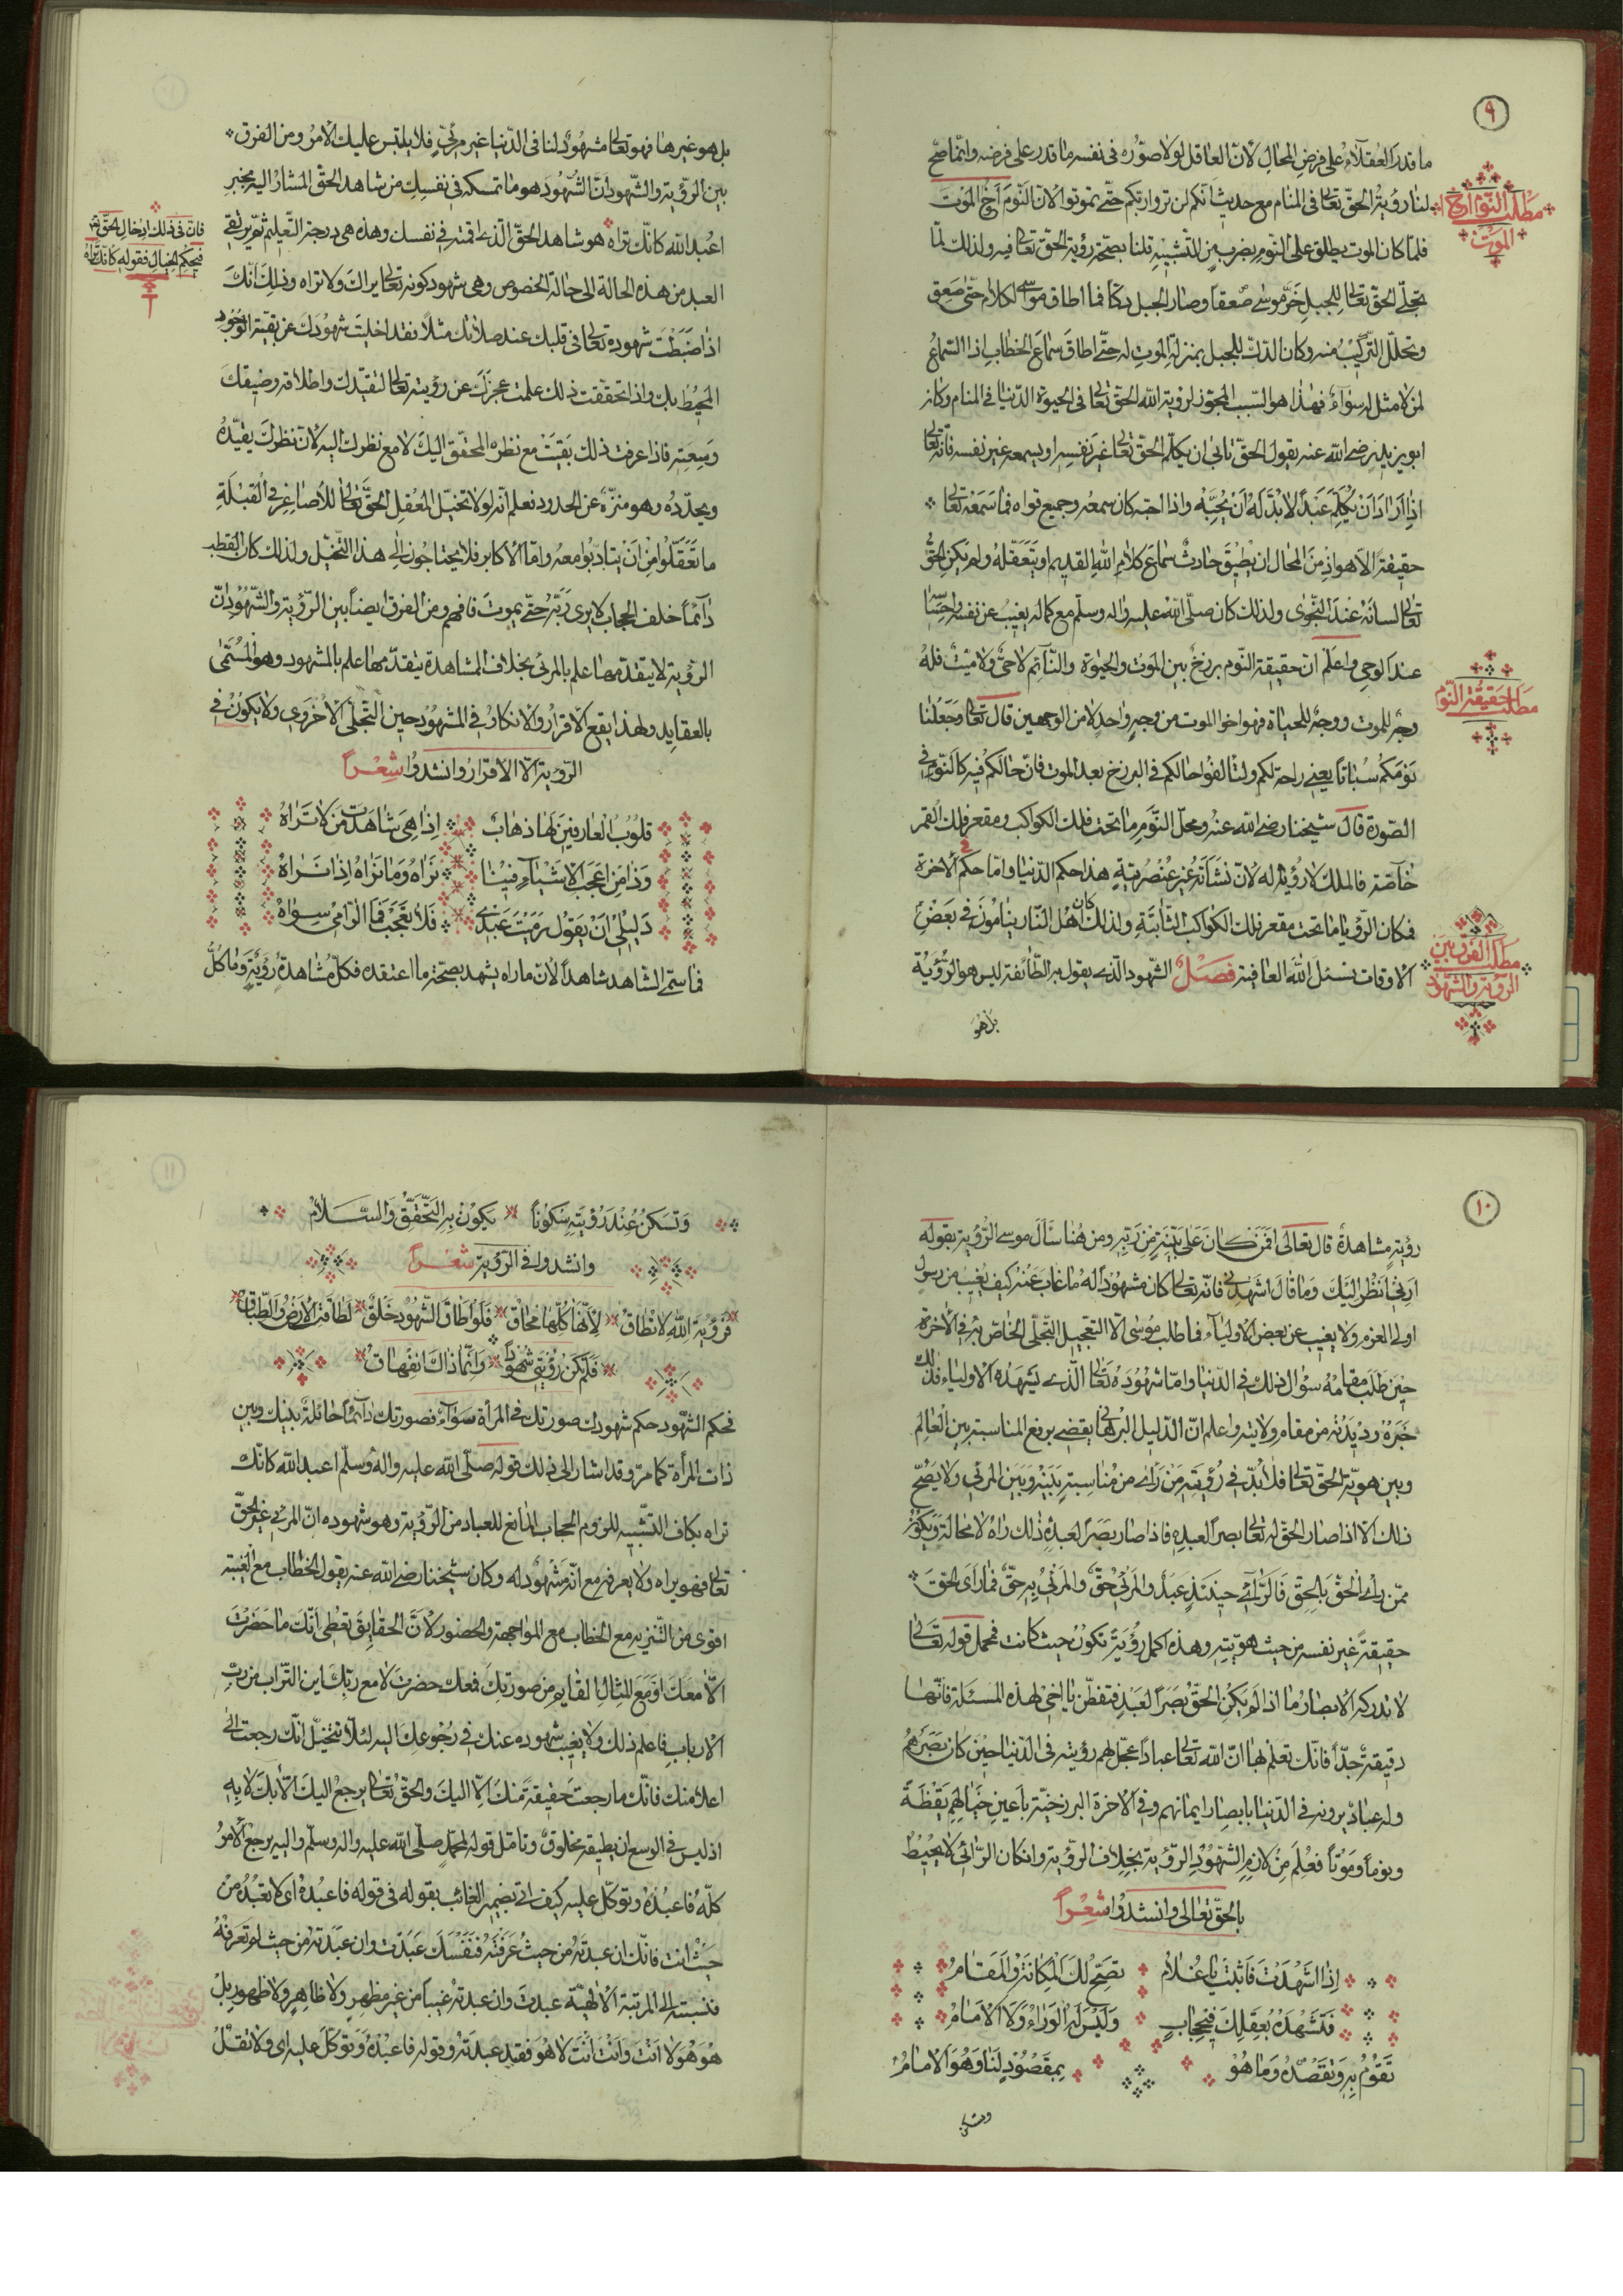 ٩
ما قدر العقلاء على فرض المحال لان العاقل لولا صوره فى نفسه ما قدر على فرضه وانما صح
لنا رؤية الحق تعالى فى المنام مع حديث انكم لن تروا ربكم حتى تموتوا لان النوم اخ الموت
مطلب النوم اخ الموت
فلما كان الموت يطلق على النوم بضرب من التشبيه قلنا بصحة رؤية الحق تعالى فيه ولذلك لما
تجلى الحق تعالى للجبل خر موسى صعقا وصار الجبل دكا فما اطاق موسى الكلام حتى صعق
وتحلل التركيب منه وكان الدك للجبل بمنزلة الموت له حتى اطاق سماع الخطاب اذا السماع
لمن لا مثل له سواء فهذا هو السبب المجوز لرؤية الله الحق تعالى فى الحيوة الدنيا فى المنام وكان
ابو يزيد رضى الله عنه يقول الحق تابى ان يكلم الحق تعالى غير نفسه او يسمعه غير نفسه فانه تعالى
اذا اراد ان يكلم عبدا لابد له ان يحبه واذا احبه كان سمعه وجميع قواه فما سمعه تعالى
حقيقة الا هو اذ من المحال ان يطيق حادث سماع كلام الله القديم او يتعقله ولم يكن الحق
تعالى لسانه عند النجوى ولذلك كان صلى الله عليه واله وسلم مع كماله يغيب عن نفسه واحساسه
عند الوحى واعلم ان حقيقة النوم برزخ بين الموت والحيوة والنائم لا حى ولا ميت فله
مطلب حقيقة النوم
وجه للموت ووجه للحياة فهو اخو الموت من وجه واحد لا من الوجهين قال تعالى وجعلنا
نومكم سباتا يعنى راحة لكم ولتالفوا حالكم فى البرزخ بعد الموت فان حالكم فيه كالنوم فى
الصورة قال شيخنا رضى الله عنه ومحل النوم ما تحت فلك الكواكب ومقعر فلك القمر
خاصة فالملك لا رؤيا له لان نشأته غير عنصرية هذا حكم الدنيا واما حكم الاخرة
فكان الرؤيا ما تحت مقعر فلك الكواكب الثابتة ولذلك كان اهل النار ينامون فى بعض
الاوقات نسئل الله العافية فصل الشهود الذى يقول به الطائفة ليس هو الرؤية
مطلب الفرق بين الرؤية والشهود
بل هو
بل هو غيرها فهو تعالى مشهود لنا فى الدنيا غير مرئى فلا يلتبس عليك الامر ومن الفرق
بين الرؤية والشهود ان الشهود هو ما تمسكه فى نفسك من شاهد الحق المشار اليه بخبر
اعبد الله كانك تراه هو شاهد الحق الذى اقمته فى نفسك وهذه هى درجة التعليم ثم يرتقى
فان فى ذلك ادخال الحق
فى حكم الخيال فقوله كانك تراه
العبد من هذه الحالة الى حالة الخصوص وهى شهود كونه تعالى يراك ولا تراه وذلك انك
اذا ضبطت شهوده تعالى فى قلبك عند صلاتك مثلا فقد اخليت شهودك عن بقية الوجود
المحيط بك واذا تحققت ذلك علمت عجزك عن رؤيته تعالى لتقيدك واطلاقه وضيقك
وسعته فاذا عرفت ذلك بقيت مع نظره المحقق اليك لا مع نظرك اليه لان نظرك يقيده
ويحدده وهو منزه عن الحدود نعلم انه لولا تخيل العقل الحق تعالى للاصاغر فى القبلة
ما تعقلوا من ان يتادبوا معه واما الاكابر فلا يحتاجون الى هذا التخيل ولذلك كان القطب
دائما خلف الحجاب لا يرى ربه حتى يموت فافهم ومن الفرق ايضا بين الرؤية والشهود ان
الرؤية لا يتقدمها علم بالمرئى بخلاف المشاهدة يتقدمها علم بالمشهود وهو المسمى
بالعقايد ولهذا يقع الاقرار والانكار فى المشهود حين التجلى الاخروى ولا يكون فى
الرؤية الا الاقرار وانشدوا شعرا
قلوب العارفين لها ذهاب اذا هى شاهدت من لا تراه
وذا من اعجب الاشياء فينا نراه وما نراه اذا نراه
دليلى ان يقول رميت عبدى فلا تعجب فما الرامى سواه
فما سمى الشاهد شاهدا الا لان ماراه يشهد بصحة ما اعتقده فكل مشاهدة رؤية وما كل
١٠
رؤية مشاهدة قال تعالى افمن كان على بينة من ربه ومن هنا سأل موسى الرؤية بقوله
ارنى انظر اليك وما قال اشهدنى فانه تعالى كان مشهودا له ما غاب عنه كيف يغيب من رسول
اولى العزم ولا يغيب عن بعض الاولياء فما طلب موسى الا التعجيل التجلى الخاص به فى الاخرة
حين طلب مقامه سؤال ذلك فى الدنيا واما شهوده تعالى الذى يشهده الاولياء فذلك
خبره وديدنه من مقام ولايته واعلم ان الدليل البرهانى يقضى برفع المناسبة بين العالم
وبين هوية الحق تعالى فلا بد فى رؤيته من رأى من مناسبة بينه وبين المرئى ولا يصح
ذلك الا اذا صار الحق له تعالى بصرا لعبده فاذا صار بصرا لعبده ذلك راه لا محالة ويكون
ممن راى الحق بالحق فالرائى حينئذ عبد والمرئى حق والمرئى به حق فما رأى الحق
حقيقة غير نفسه من حيث هويته وهذه اكمل رؤية تكون حيث كانت فمحمل قوله تعالى
لا تدركه الابصار ما اذا لم يكن الحق بصر العبد فتفطن يا اخى لهذه المسئلة فانها
دقيقة جدا فانك تعلم بها ان الله تعالى عبادا عجل لهم رؤيته فى الدنيا حين كان بصرهم
وله عباد يرونه فى الدنيا بابصار ايمانهم وفى الاخرة البرزخية باعين خيالهم يقظة
ونوما وموتا فعلم من لازم الشهود الرؤية بخلاف الرؤية وان كان الرائى لا يحيط
بالحق تعالى وانشدوا شعرا
اذا اشهدت فاثبت يا غلام تصح لك المكانة والمقام
فتشهده بعقلك فى حجاب وليس له الوراء ولا الامام
تقوم به وتقصده وما هو بمقصود لنا وهو الامام
وتسكن
١١
وتسكن عند رؤيته سكونا يكون به التحقق والسلام
وانشدوا فى الرؤية شعرا
فرؤية الله لا تطاق لانها كلها محاق فلو اطاق الشهود خلق لطاقة الارض والطباق
فلم تكن رؤيتى شهودا وانما ذاك انفهاق
فحكم الشهود حكم شهودك صورتك فى المرأة سواء فصورتك دائما حائلة بينك وبين
ذات المرأة كما مر وقد اشار الى ذلك قوله صلى الله عليه واله وسلم اعبد الله كانك
تراه بكاف التشبيه للزوم الحجاب المانع للعباد من الرؤية وهو شهوده ان المرئى غير الحق
تعالى فهو يراه ولا يعرفه مع انه مشهود له وكان شيخنا رضى الله عنه يقول الخطاب مع الغيبة
اقوى من التنزيه مع الخطاب مع المواجهة والحضور لان الحقايق تعطى انك ما حضرت
الا معك او مع المثال القايم من صورتك فمعك حضرت لا مع ربك اين التراب من رب
الارباب فاعلم ذلك ولا يغيب شهوده عنك فى رجوعك اليه لئلا تتخيل انك رجعت الى
اعلا منك فانك ما رجعت حقيقة منك الا اليك والحق تعالى يرجع اليك الا بك لا به
اذ ليس فى الوسع ان يطيقه مخلوق وتامل قوله لمحمد صلى الله عليه واله وسلم واليه يرجع الامر
كله فاعبده وتوكل عليه كيف اتى بضمير الغائب بقوله فى قوله فاعبده اى لا تعبده من
حيث انت فانك ان عبدته من حيث عرفته فنفسك عبدت وان عبدته من حيث لم تعرفه
فنسبته الى المرتبة الالهية عبدت وان عبدته غيبا من غير مظهر ولا ظاهر ولا ظهور بل
هو هو لا انت وانت انت لا هو فقد عبدته وقوله فاعبده وتوكل عليه اى ولا تقل